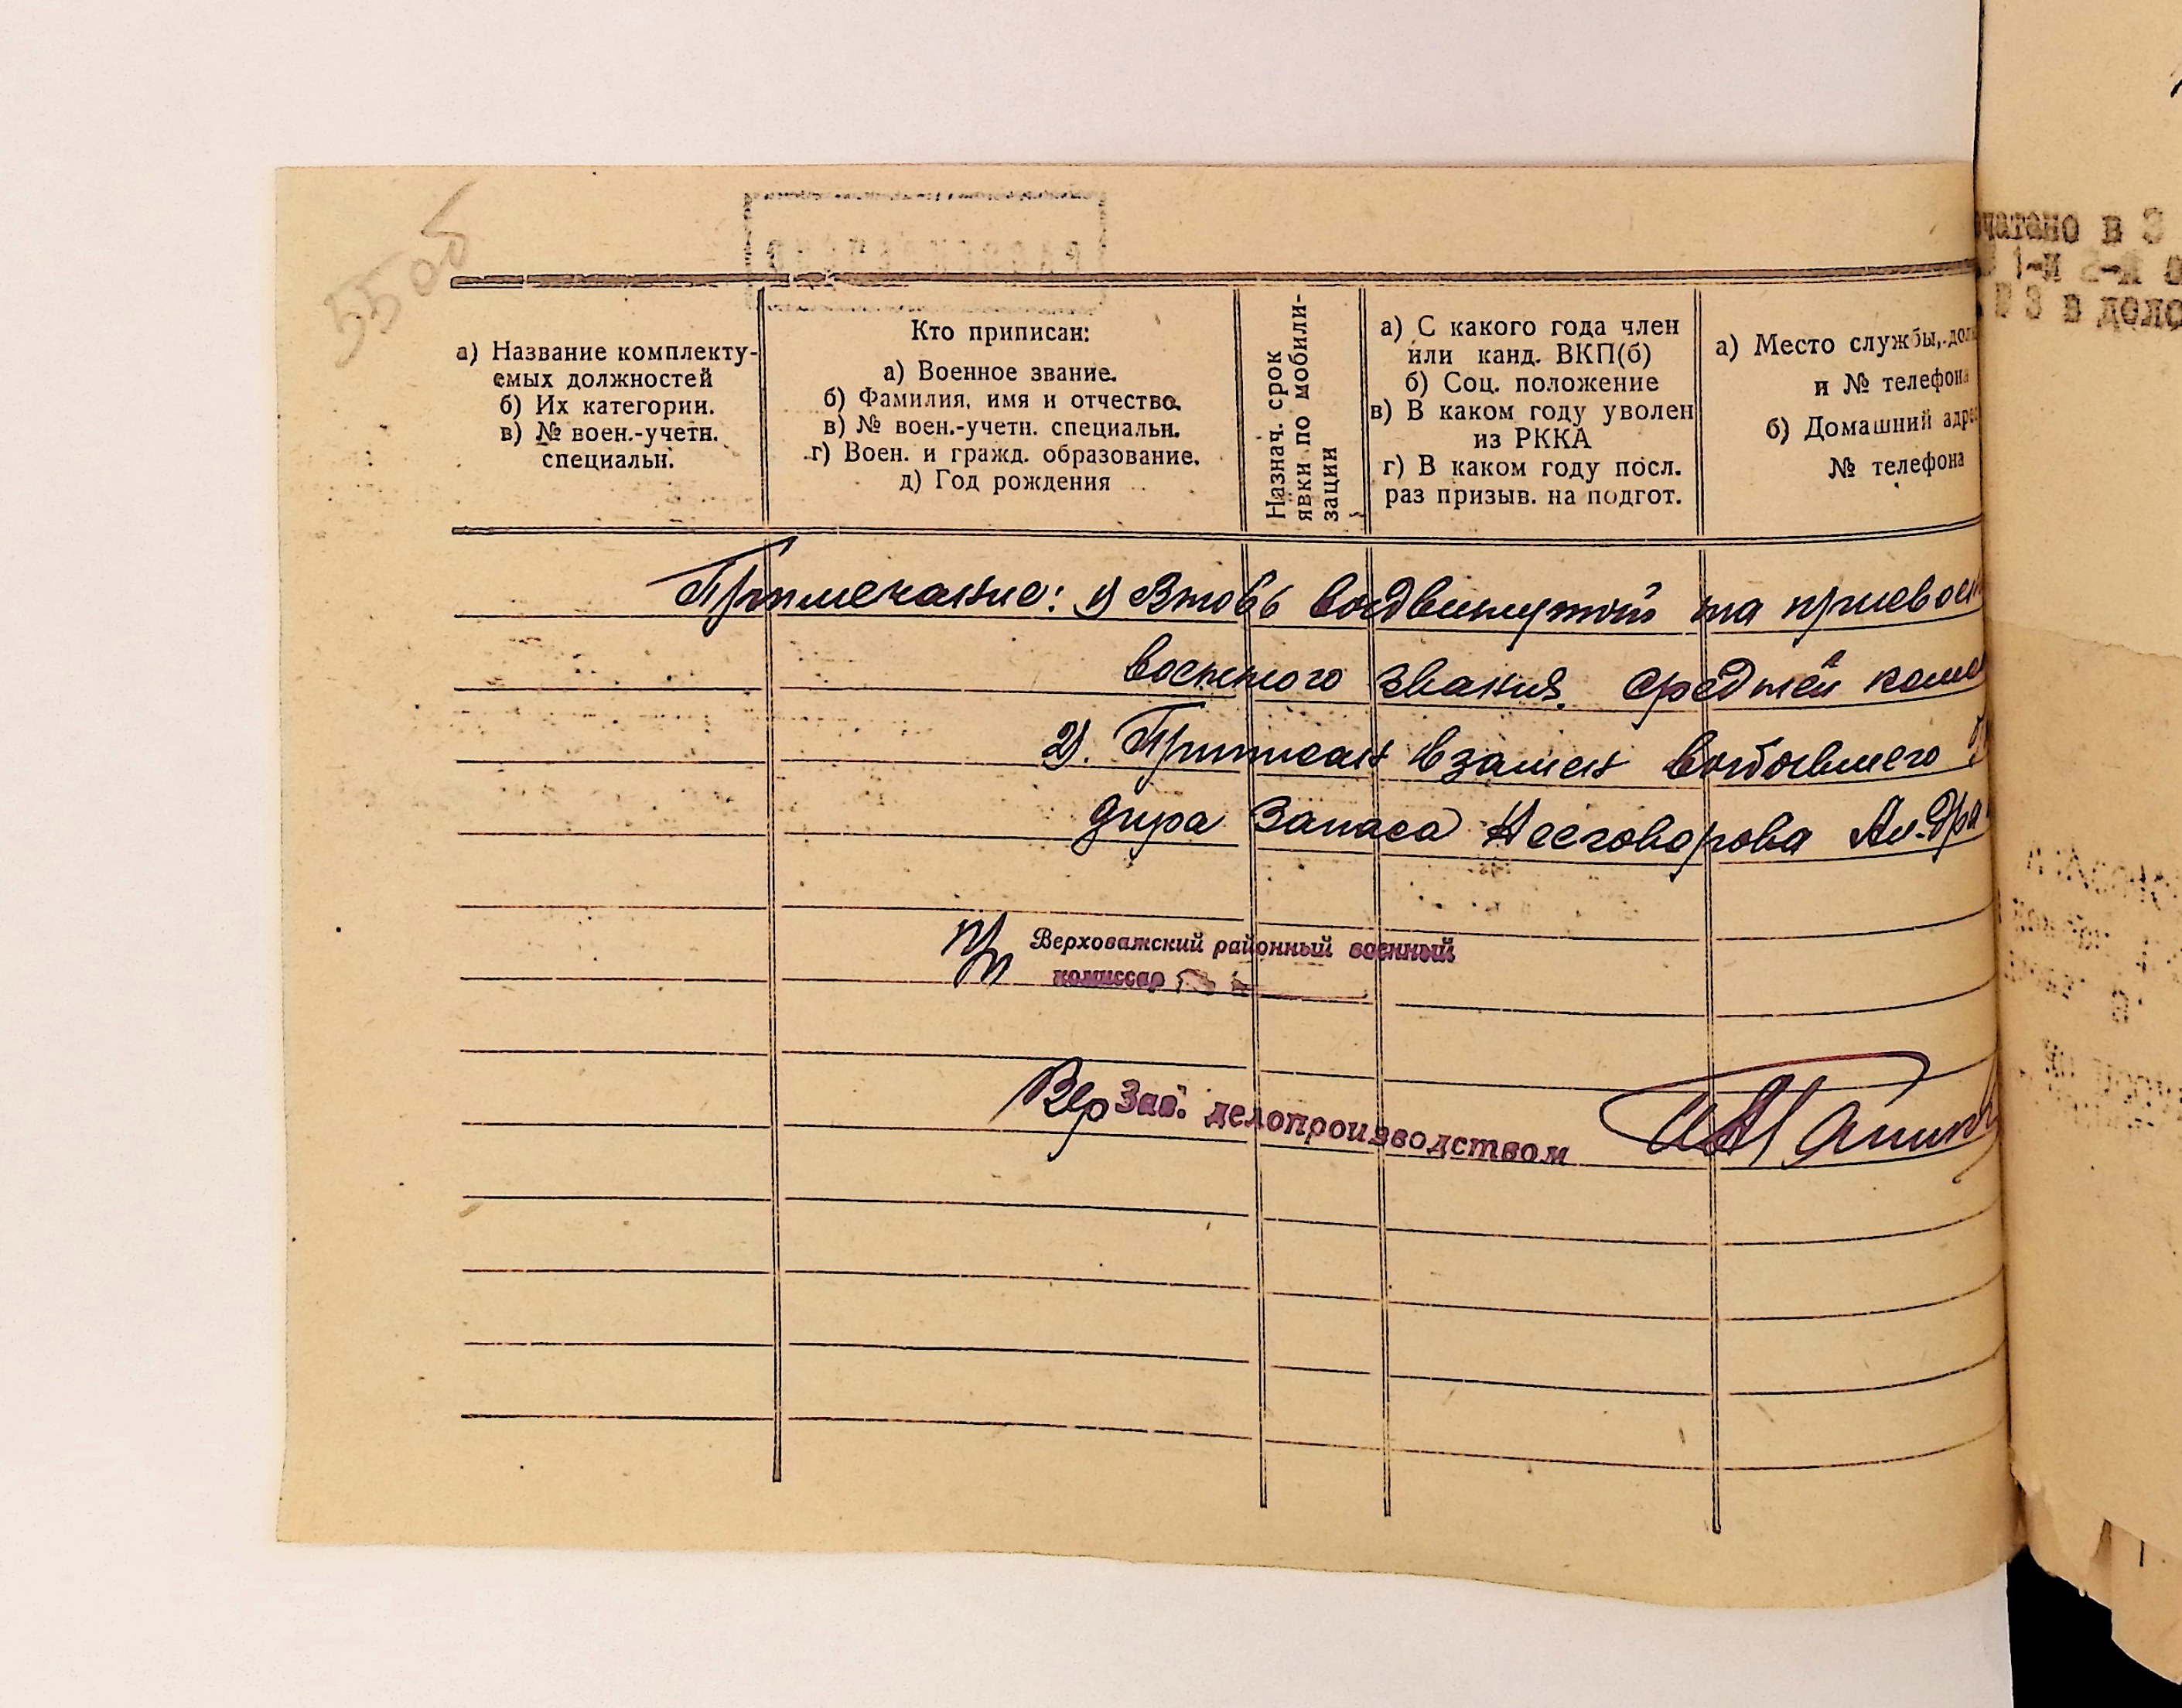 55об
а) Название комплекту-
емых должностей
б) Их категории.
в) № воен.-учетн.
специальн.
Кто приписан:
а) Военное звание.
б) Фамилия, имя и отчество.
в) № воен.-учетн. специальн.
г) Воен. и гражд. образование.
д) Год рождения
Назнач. срок
явки по мобили-
зации
а) С какого года член
или канд. ВКП(б)
б) Соц. положение
в) В каком году уволен
из РККА
г) В каком году посл.
раз призыв. на подгот.
а) Место службы, дол
и № телефона
б) Домашний адре
№ телефона
Примечание: 1) Вновь выдвинутый на присвоен
военного звания средней кома
2). Приписан взамен выбывшего
дира запаса Несговорова Ал-дра
п/п Верховажский районный военный
комиссар
Вер Зав. делопроизводством
чатано в 3
1-й 2-й
3 в дело